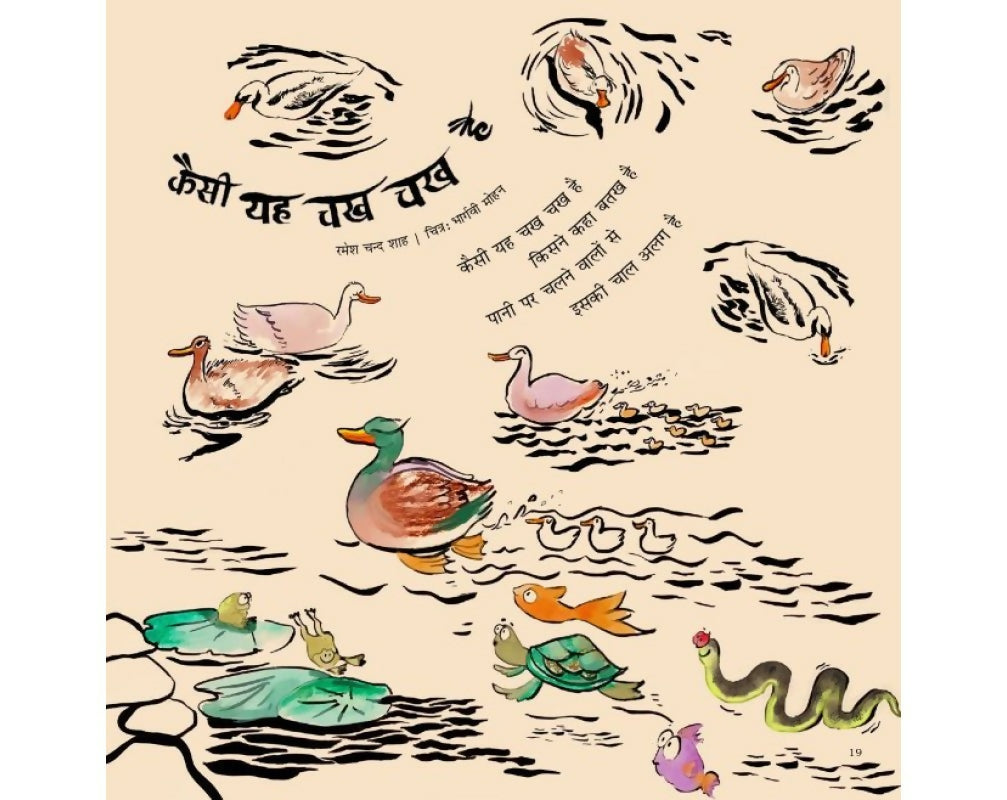 कैसी यह चख चख है
रमेश चन्द शाह | चित्र: भार्गवी मोहन
कैसी यह चख चख है
किसने कहा बतख है
पानी पर चलने वालों से
इसकी चाल अलग है
19